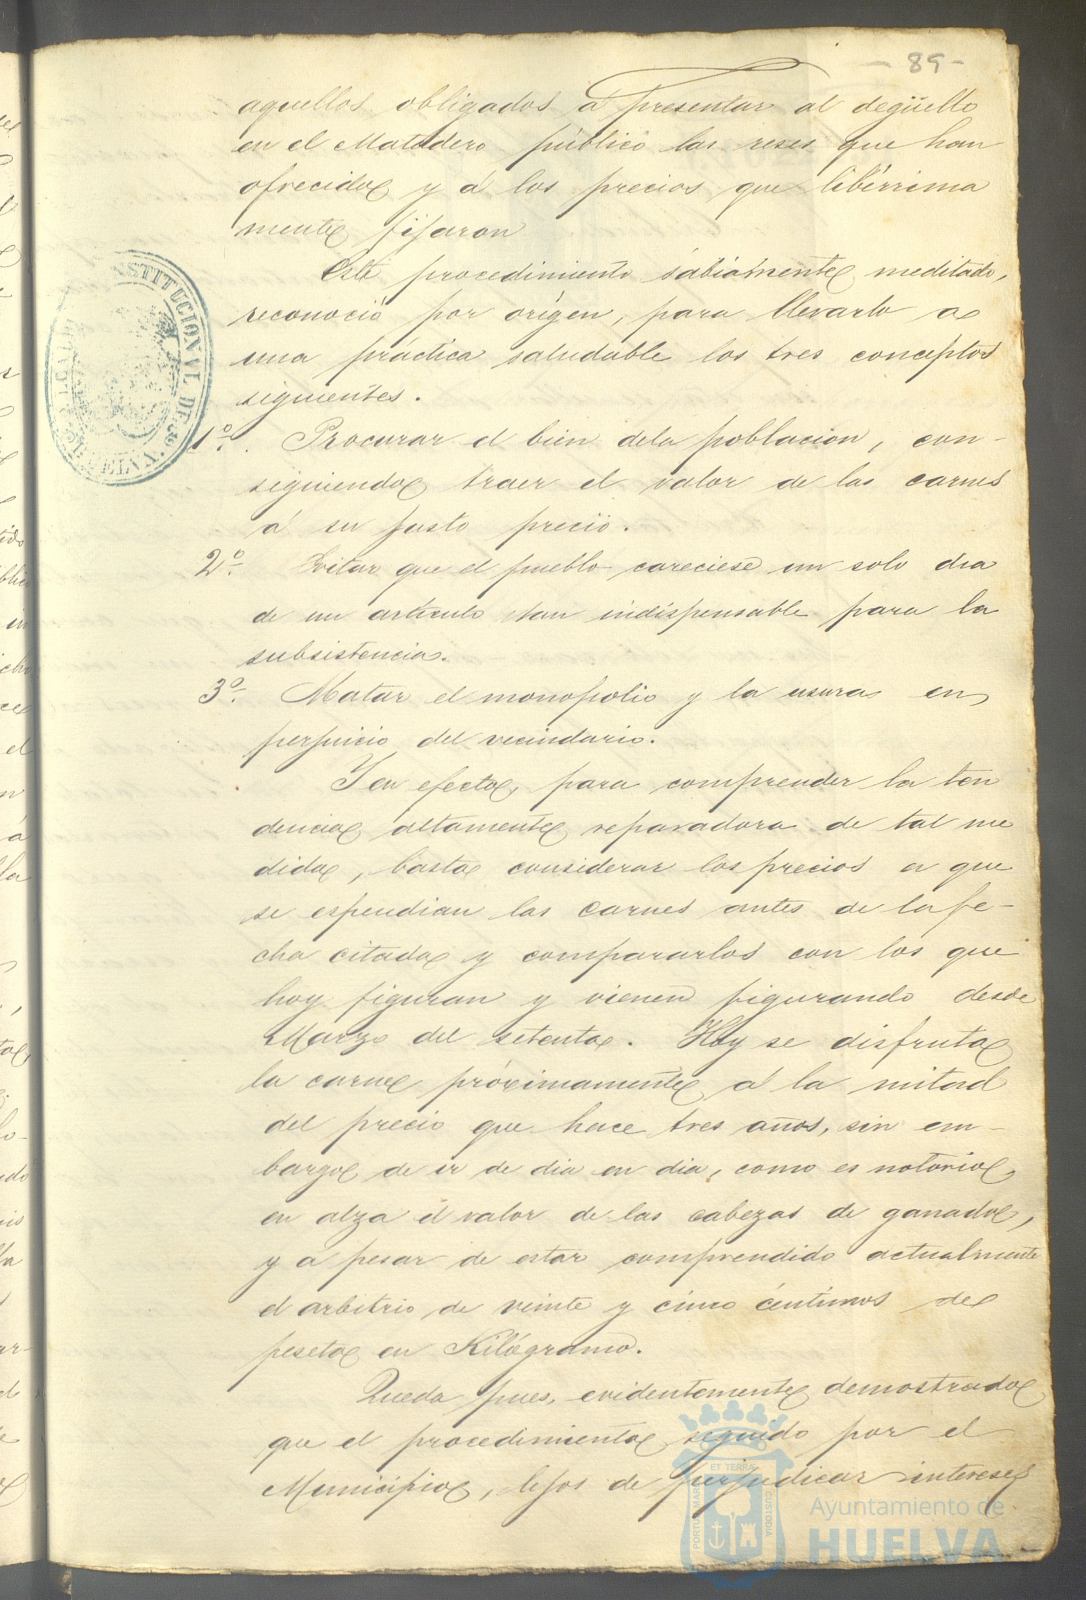 - 85 -
aquellos obligados á presentar al degüello
en el Matadero público las reses que han
ofrecido y á los precios que libérrima
mente fijaron
Este procedimiento sabiamente meditado,
reconoció por orígen, para llevarlo a
una práctica saludable los tres conceptos
siguientes.
1º. Procurar el bien dela poblacion, con-
siguiendo traer el valor de las carnes
á su justo precio.
2º. Evitar que el pueblo careciese un solo dia
de un artículo tan indispensable para la
subsistencia.
3º. Matar el monopolio y la usura en
perjuicio del vecindario.
Y en efecto, para comprender la ten
dencia altamente reparadora de tal me
dida, basta considerar los precios a que
se espendian las carnes antes de la fe-
cha citada y compararlos con los que
hoy figuran y vienen figurando desde
Marzo del setenta. Hoy se disfruta
la carne próximamente á la mitad
del precio que hace tres años, sin em-
bargo de ir de dia en dia, como es notorio,
en alza el valor de las cabezas de ganado,
y á pesar de estar comprendido actualmente
el arbitrio de veinte y cinco céntimos de
peseta en Kilógramo.
Queda pues, evidentemente demostrado
que el procedimiento seguido por el
Municipio, lejos de perjudicar intereses
CONSTITUCIONAL DE HUELVA
PORTUS MARIS ET TERRAE CUSTODIA
Ayuntamiento de
HUELVA